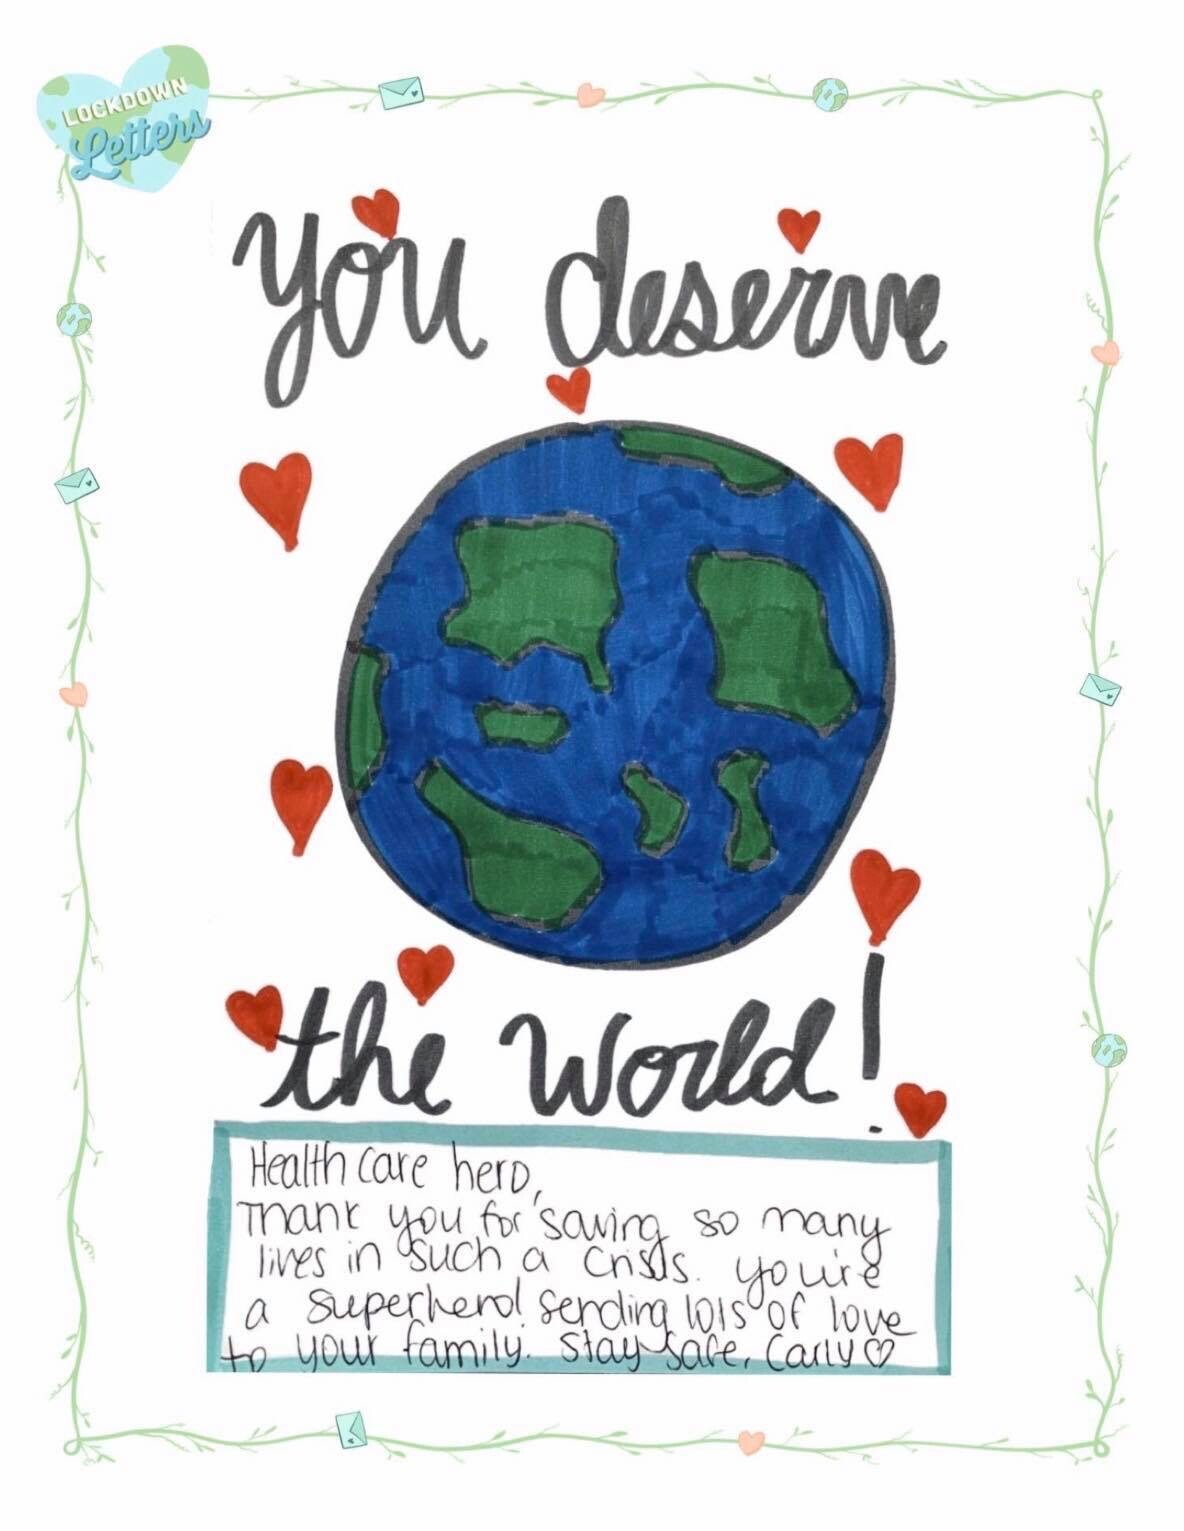 LOCKDOWN
Letters
You deserve
the World!
Healthcare hero,
Thank you for saving so many
lives in such a crisis. you're
a superhero! Sending lots of love
to your family. Stay safe, Carly♡